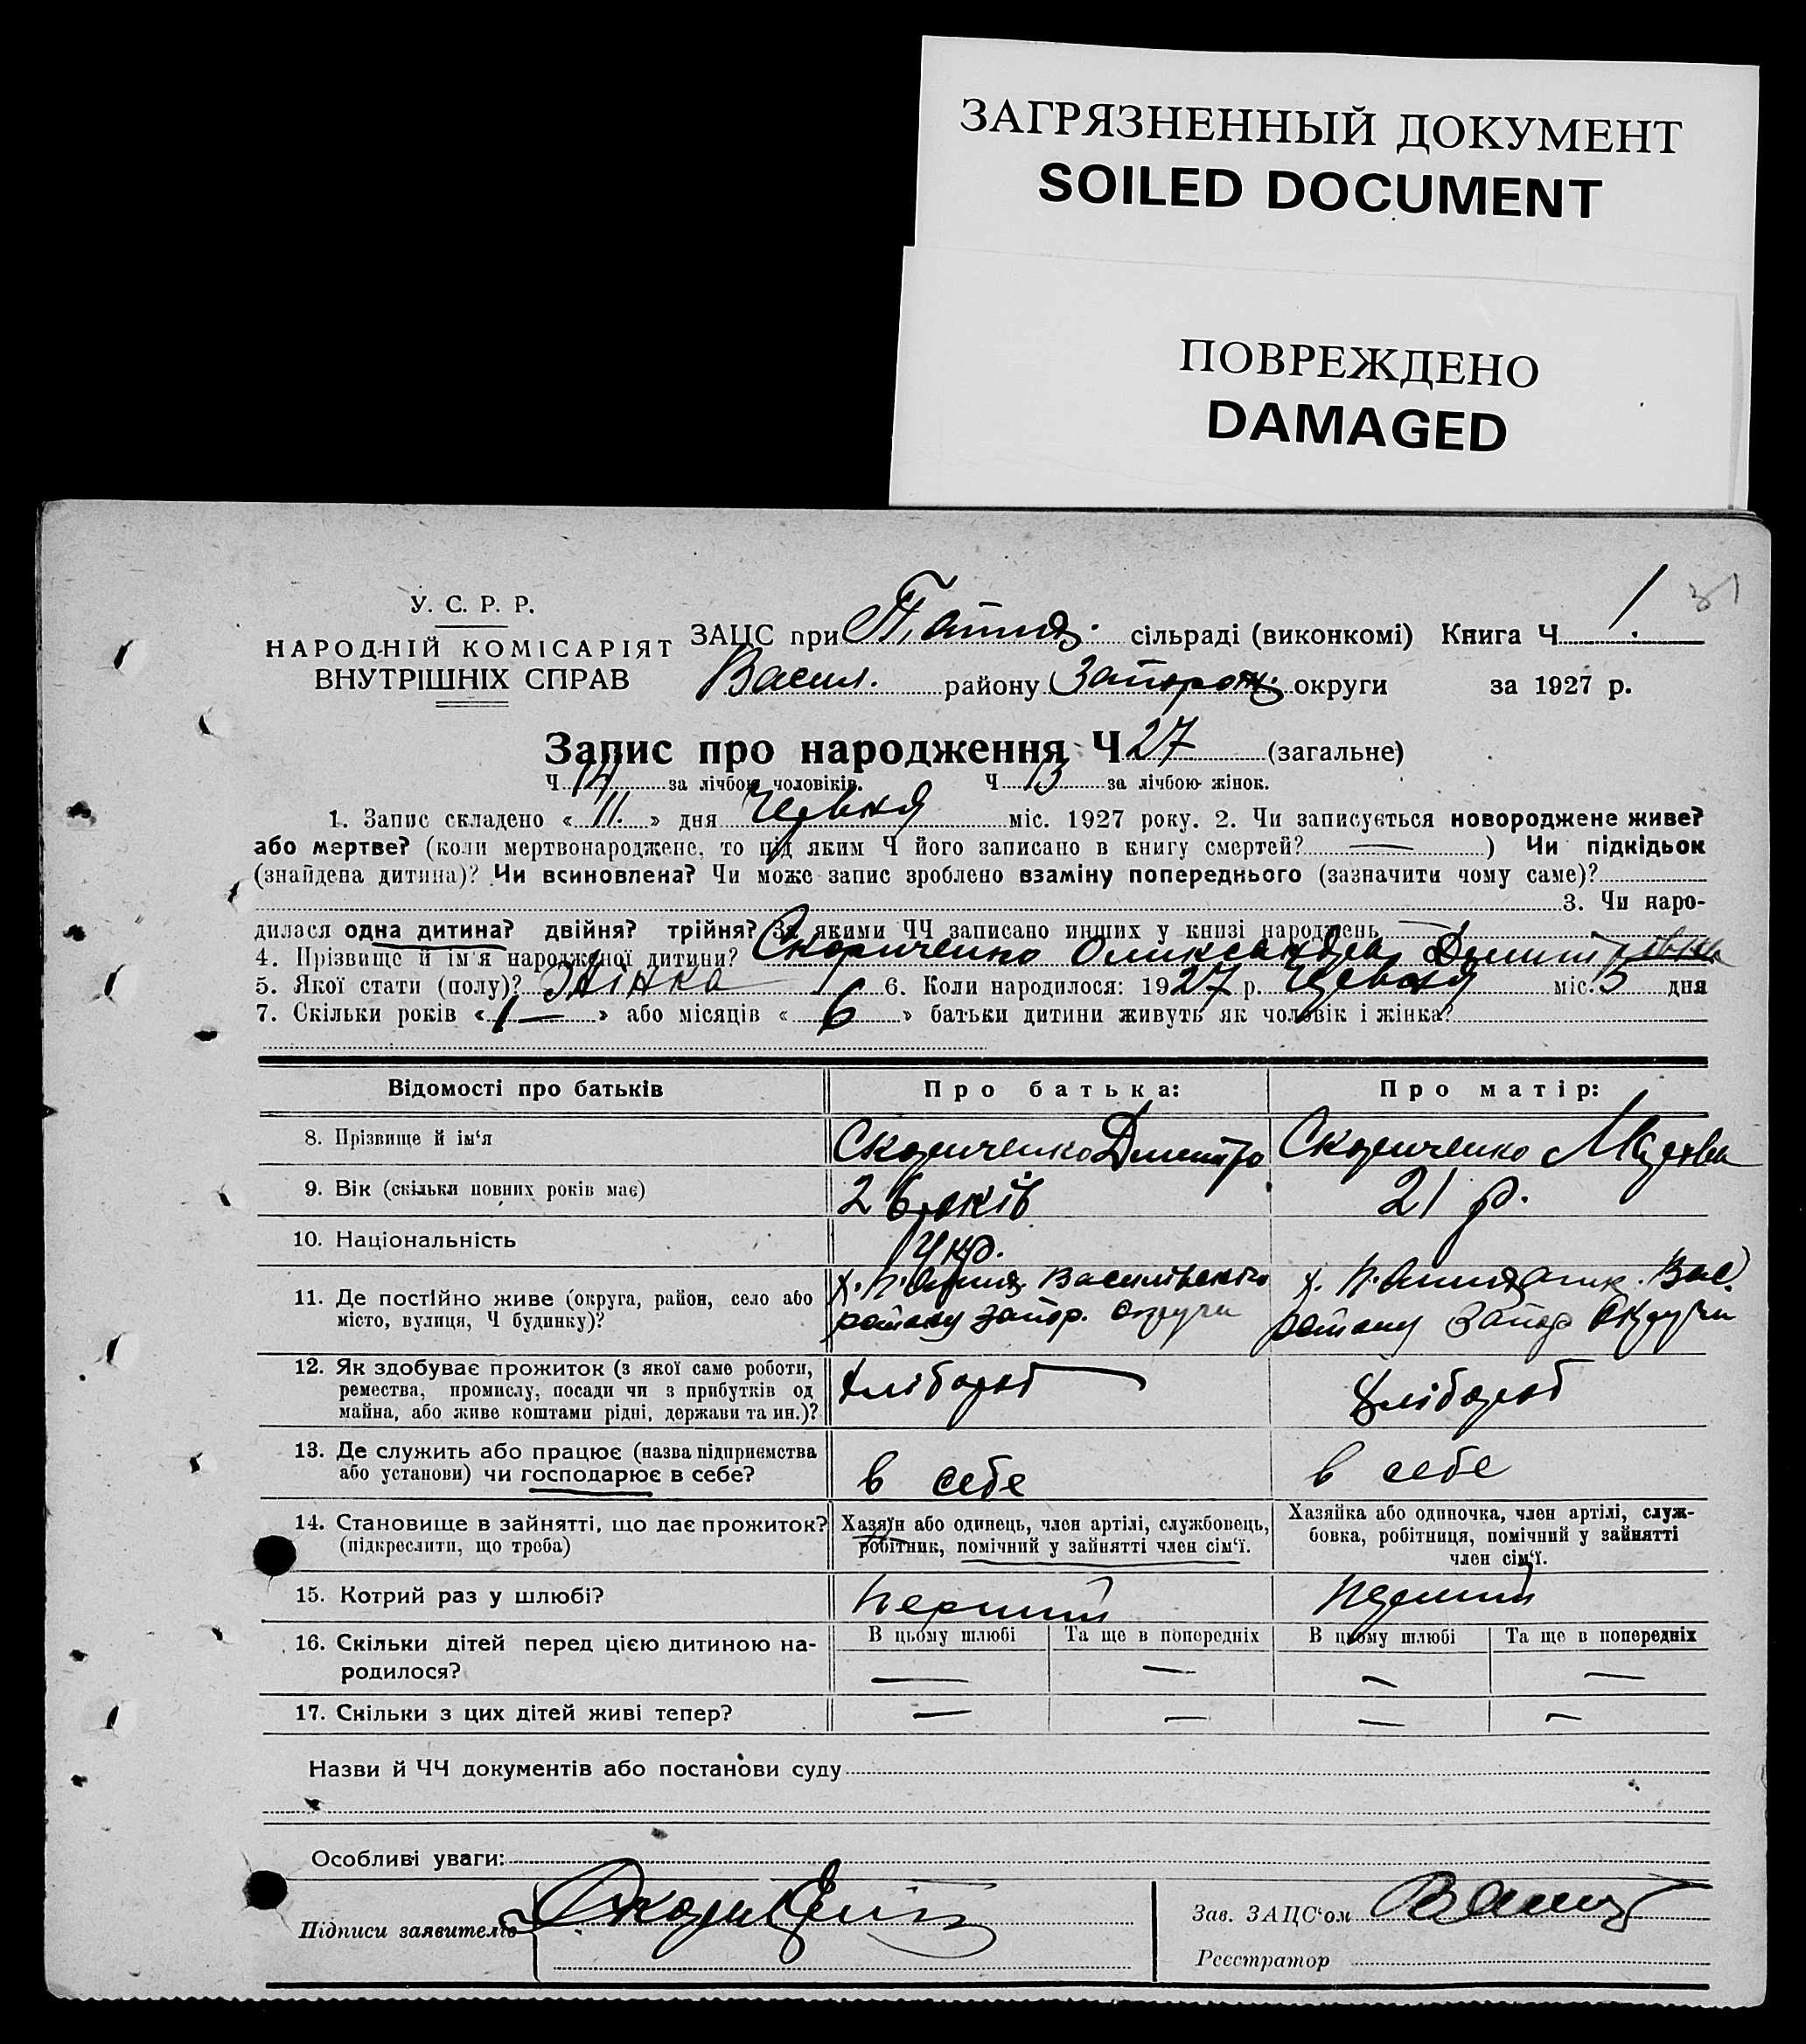 ЗАГРЯЗНЕННЫЙ ДОКУМЕНТ
SOILED DOCUMENT
ПОВРЕЖДЕНО
DAMAGED
1.
У. С. Р. Р.
НАРОДНІЙ КОМІСАРІЯТ
ВНУТРІШНІХ СПРАВ
ЗАЦС при сільраді (виконкомі) Книга Ч
Васил. району Запорож. округи за 1927 р.
Запис про народження Ч 27 (загальне)
Ч 14 за лічбою чоловіків. Ч 13 за лічбою жінок.
1. Запис складено « 11. » дня Червня міс. 1927 року. 2. Чи записується новороджене живе?
або мертве? (коли мертвонароджене, то під яким Ч його записано в книгу смертей? — ) Чи підкідьок
(знайдена дитина)? Чи всиновлена? Чи може запис зроблено взаміну попереднього (зазначити чому саме)?
3. Чи наро-
дилася одна дитина? двійня? трійня? За якими ЧЧ записано инших у книзі народжень —
4. Прізвище й ім'я народженої дитини? Скориченко Олександра Дмитровна
5. Якої стати (полу)? Жінка 6. Коли народилося: 1927 р. Червня міс. 5 дня
7. Скільки років « — » або місяців « 6 » батьки дитини живуть як чоловік і жінка?
Відомості про батьків Про батька: Про матір:
8. Прізвище й ім'я Скориченко Дмитро Скориченко
9. Вік (скільки повних років має) 26 років 21 р.
10. Національність Укр.
11. Де постійно живе (округа, район, село або місто, вулиця, Ч будинку)?
х. Василівського х. Вас.
району Запор. округи району Запор округи
12. Як здобуває прожиток (з якої саме роботи, ремества, промислу, посади чи з прибутків од майна, або живе коштами рідні, держави та ин.)?
хлібороб хлібороб
13. Де служить або працює (назва підприємства або установи) чи господарює в себе?
в себе в себе
14. Становище в зайнятті, що дає прожиток? (підкреслити, що треба)
Хазяїн або одинець, член артілі, службовець, робітник, помічний у зайнятті член сім'ї.
Хазяйка або одиночка, член артілі, служ-
бовка, робітниця, помічний у зайнятті
член сім'ї.
15. Котрий раз у шлюбі? перший перший
16. Скільки дітей перед цією дитиною на-
родилося?
В цьому шлюбі Та ще в попередніх В цьому шлюбі Та ще в попередніх
— — — —
17. Скільки з цих дітей живі тепер? — — — —
Назви й ЧЧ документів або постанови суду
Особливі уваги:
Підписи заявителів
Зав. ЗАЦС'ом
Реєстратор